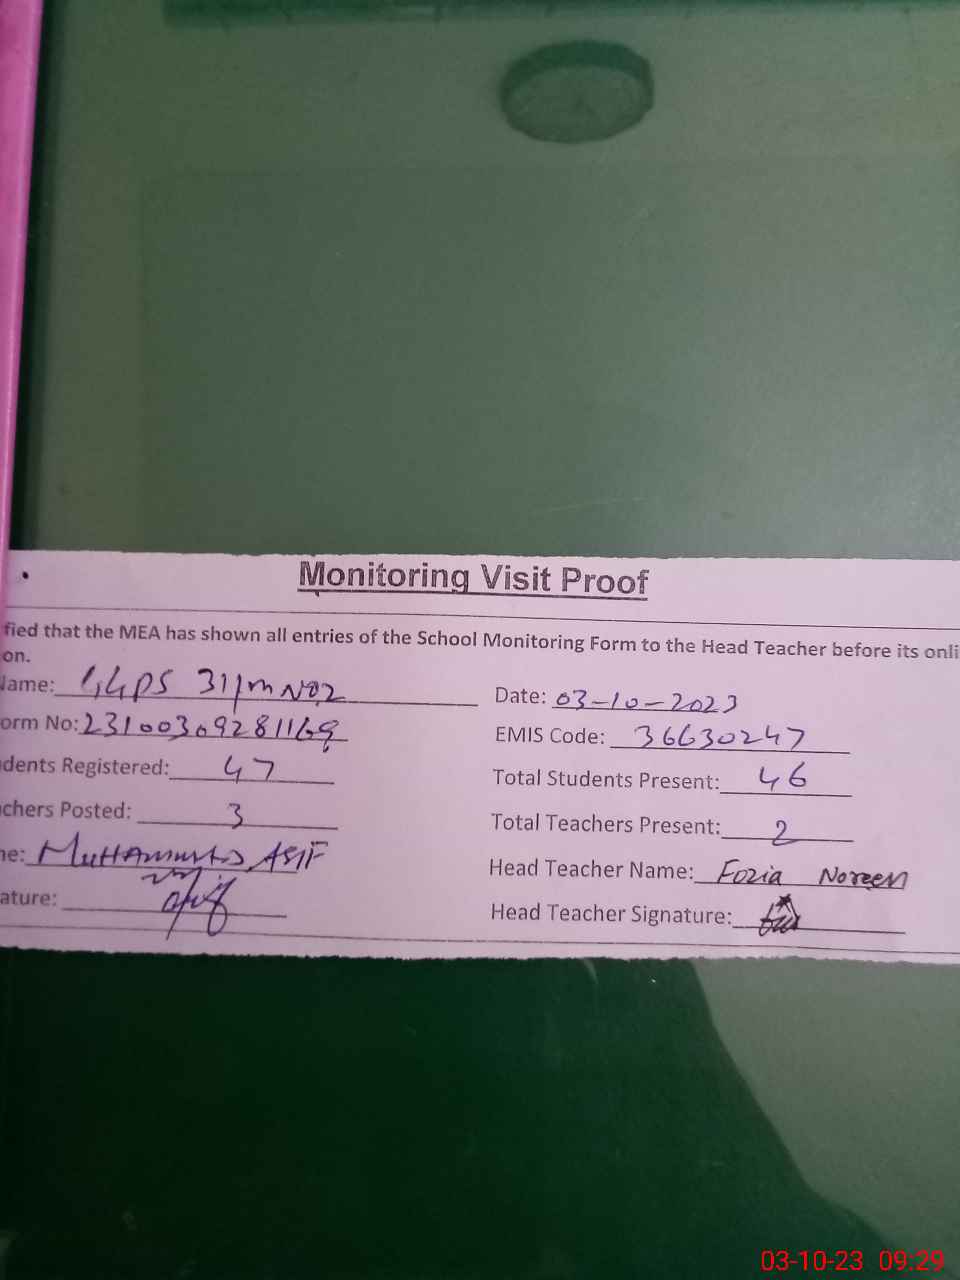 Monitoring Visit Proof
fied that the MEA has shown all entries of the School Monitoring Form to the Head Teacher before its onli
on.
Name: GGPS 31/m No2 Date: 03-10-2023
orm No: 23100309281169 EMIS Code: 36630247
dents Registered: 47 Total Students Present: 46
chers Posted: 3 Total Teachers Present: 2
me: Muhammad ASIF Head Teacher Name: Fozia Noreen
ature: Head Teacher Signature:
03-10-23 09:29